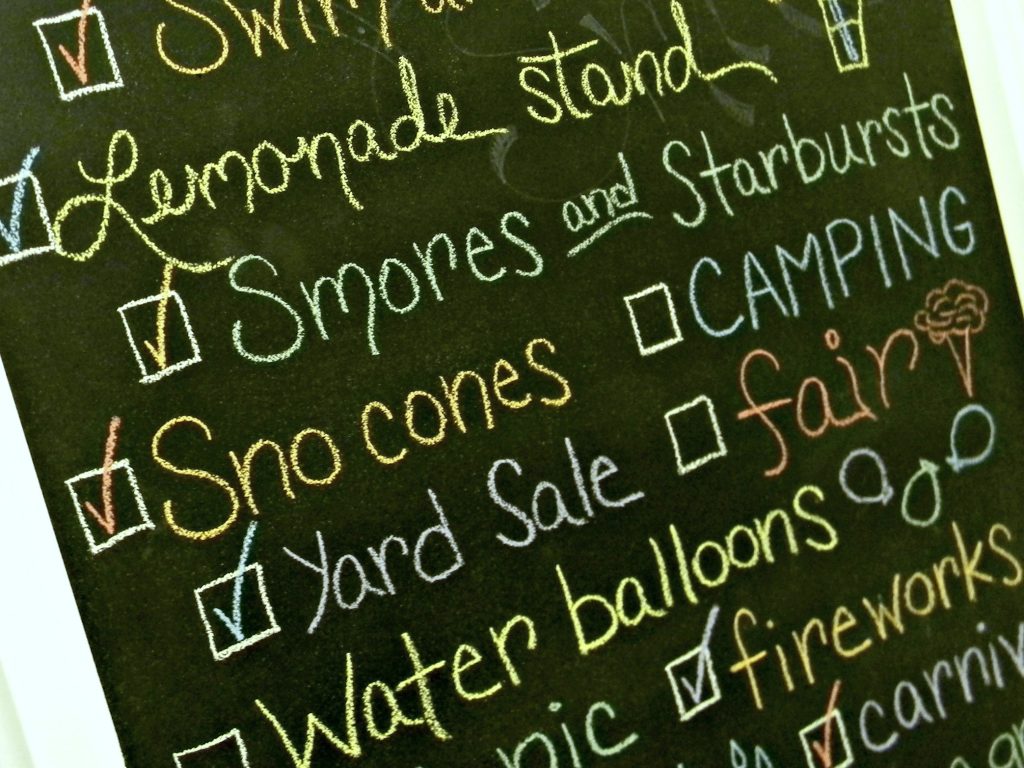 Lemonade stand
Smores and Starbursts
CAMPING
Sno cones
fair
Yard Sale
Water balloons
fireworks